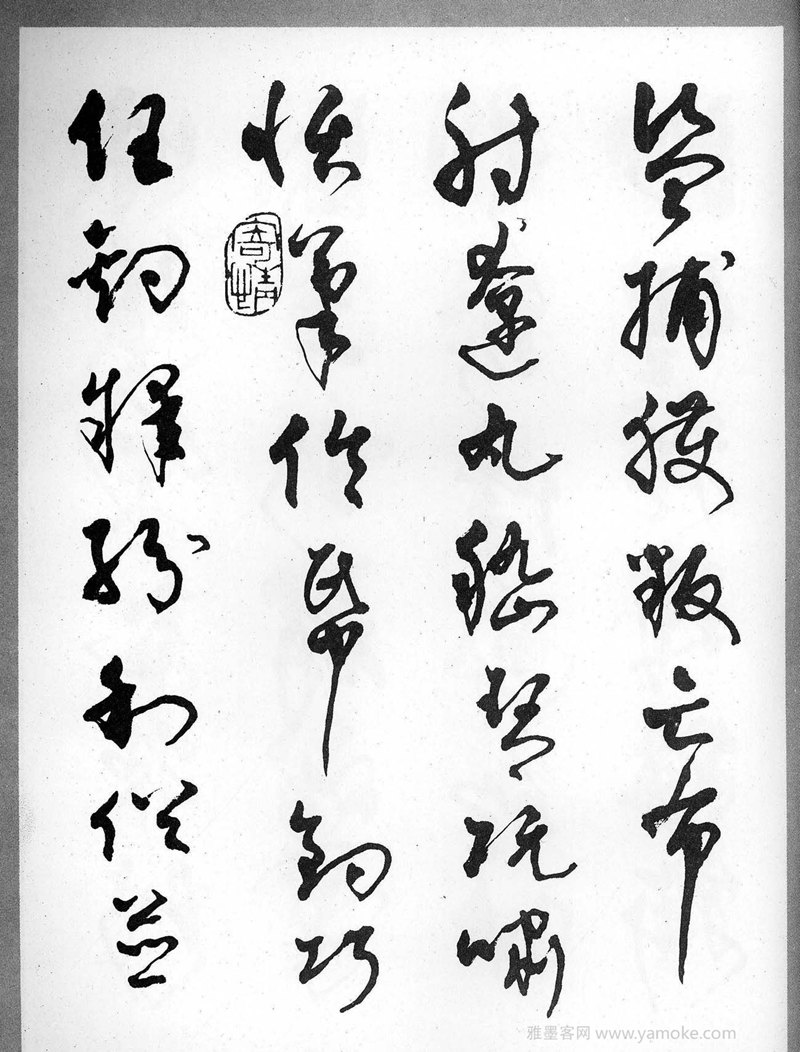 盜捕獲叛亡布
射遼丸嵇琴阮嘯
恬筆倫帋鈞巧
任釣釋紛利俗並
雅墨客网 www.yamoke.com